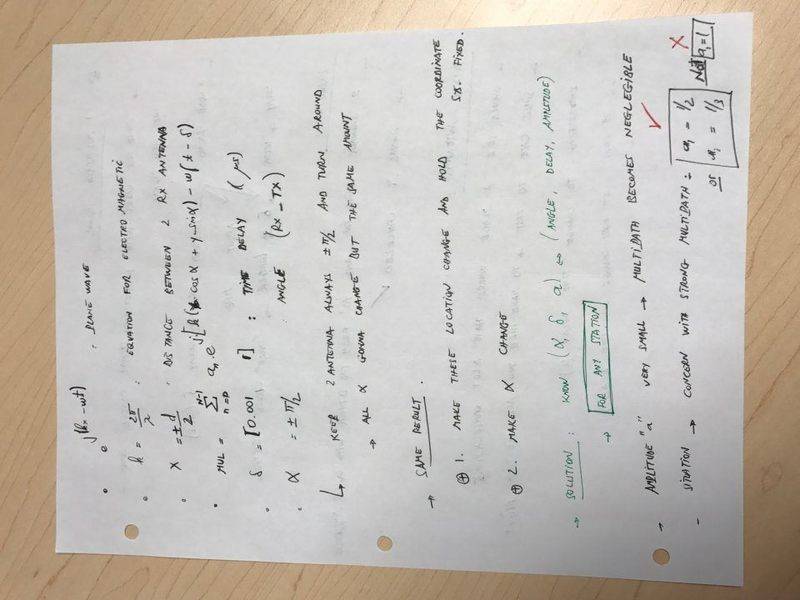 • e^j(kx-wt) : PLANE WAVE
• k = 2π/λ : EQUATION FOR ELECTRO MAGNETIC
• X = ± d/2 : DISTANCE BETWEEN 2 RX ANTENNA
• MUL = Σ_{n=0}^{N-1} a_n . e^j[k(x.cosα + y-sinα) - w(t-δ)]
δ = [0.001 1] : TIME DELAY (μs)
• α = ± π/2 : ANGLE (RX - TX)
↳ KEEP 2 ANTENNA ALWAYS ± π/2 AND TURN AROUND
→ ALL α GONNA CHANGE BUT THE SAME AMOUNT
→ SAME RESULT.
⊕ 1. MAKE THESE LOCATION CHANGE AND HOLD THE COORDINATE
SX. FIXED.
⊕ 2. MAKE α CHANGE
→ SOLUTION : KNOW (α, δ, a) ⇔ (ANGLE, DELAY, AMPLITUDE)
→ FOR ANY STATION
→ AMPLITUDE "a" VERY SMALL → MULTIPATH BECOMES NEGLEGIBLE ✓
- SITUATION → CONCERN WITH STRONG MULTIPATH = a_1 = 1/2 X
OR a_1 = 1/3 Not a_1=1